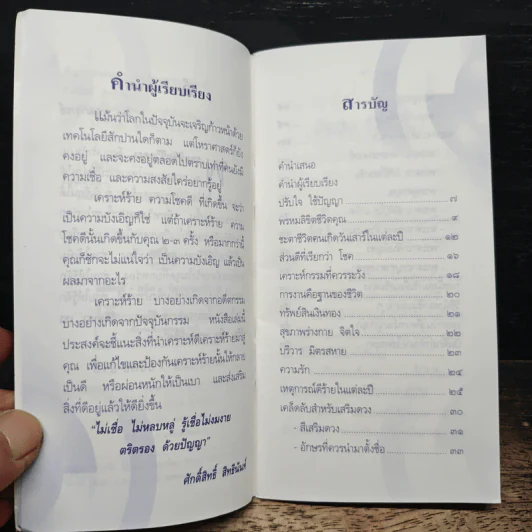 คำนำผู้เรียบเรียง
แม้นว่าโลกในปัจจุบันจะเจริญก้าวหน้าด้วย
เทคโนโลยีสักปานใดก็ตาม แต่โหราศาสตร์ก็ยัง
คงอยู่ และจะคงอยู่ตลอดไปตราบเท่าที่คนยังมี
ความเชื่อ และความสงสัยใคร่อยากรู้อยู่
เคราะห์ร้าย ความโชคดี ที่เกิดขึ้น จะว่า
เป็นความบังเอิญก็ใช่ แต่ถ้าเคราะห์ร้าย ความ
โชคดีนั้นเกิดขึ้นกับคุณ ๒-๓ ครั้ง หรือมากกว่านี้
คุณก็ชักจะไม่แน่ใจว่า เป็นความบังเอิญ แล้วเป็น
ผลมาจากอะไร
เคราะห์ร้าย บางอย่างเกิดจากอดีตกรรม
บางอย่างเกิดจากปัจจุบันกรรม หนังสือเล่มนี้
ประสงค์จะชี้แนะสิ่งที่นำเคราะห์ดีเคราะห์ร้ายมาสู่
คุณ เพื่อแก้ไขและป้องกันเคราะห์ร้ายนั้นให้กลาย
เป็นดี หรือผ่อนหนักให้เป็นเบา และส่งเสริม
สิ่งที่ดีอยู่แล้วให้ดียิ่งขึ้น
"ไม่เชื่อ ไม่หลบหลู่ รู้เชื่อไม่งมงาย
ตริตรอง ด้วยปัญญา"
ศักดิ์สิทธิ์
สารบัญ
คำนำเสนอ
คำนำผู้เรียบเรียง
ปรับใจ ใช้ปัญญา ๗
พรหมลิขิตชีวิตคุณ ๙
ชะตาชีวิตคนเกิดวันเสาร์ในแต่ละปี ๑๒
ส่วนดีที่เรียกว่า โชค ๑๖
เคราะห์กรรมที่ควรระวัง ๑๘
การงานคือฐานของชีวิต ๒๐
ทรัพย์สินเงินทอง ๒๑
สุขภาพร่างกาย จิตใจ ๒๒
บริวาร มิตรสหาย ๒๓
ความรัก ๒๔
เหตุการณ์ดีร้ายในแต่ละปี ๒๕
เคล็ดลับสำหรับเสริมดวง ๓๐
- สีเสริมดวง ๓๑
- อักษรที่ควรนำมาตั้งชื่อ ๓๓